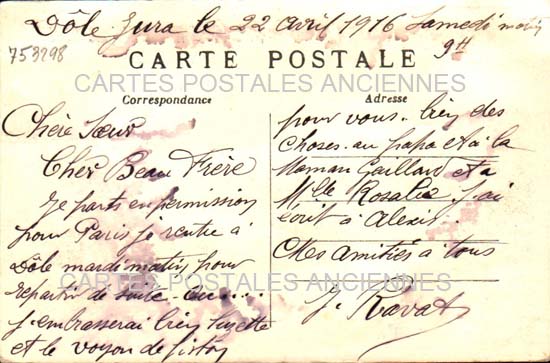 Dôle Jura le 22 avril 1916 Samedi matin
9H
753298
CARTE POSTALE
CARTES POSTALES ANCIENNES
Correspondance
Adresse
Chère Sœur
Cher Beau Frère
Je parts en permission
pour Paris je rentre à
Dôle mardi matin pour
repartir de suite
j'embrasserai bien Suzette
et le voyou de fiston
pour vous. bien des
choses au papa et à la
Maman Gaillard et a
Mlle Rosalie j'ai
écrit à Alexis.
Mes amitiés à tous
CARTES POSTALES ANCIENNES
J. Ravat